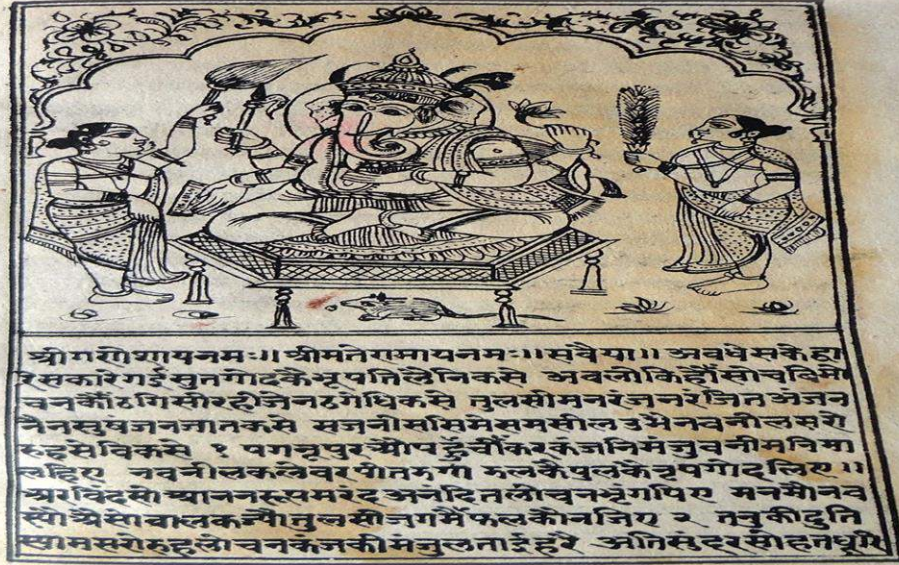 श्रीगणेशायनमः॥ श्रीमतेरामायनमः॥ सवैया॥ अवधेसकेद्वा
रेसकारेगईसुतगोदकैभूपतिलैनिकसे अवलोकिहौंसोचविमो
चनकौंठगिसीरहीजेनठगेधिकसे तुलसीमनरंजनरंजितअंजन
नैनसुषंजनजातकसे सजनीससिमेसमसीलउभैनवनीलसरो
रुहसेविकसे १ पगनूपुरऔपहुँचीकरकंजनिमंजुबनीमनिमा
लहिए नवनीलकलेवरपीतझगा झलकैपुलकैनृपगोदलिए॥
अरविंदसोआननरूपमरंदअनंदितलोचनभृंगपिए मनमौनव
स्यौऐसोबालकज्यौतुलसीजगमैंफलकौनजिए २ तनकीदुति
स्यामसरोरुहलोचनकंजकीमंजुलताईहरै अतिसुंदरसोहतधूरि